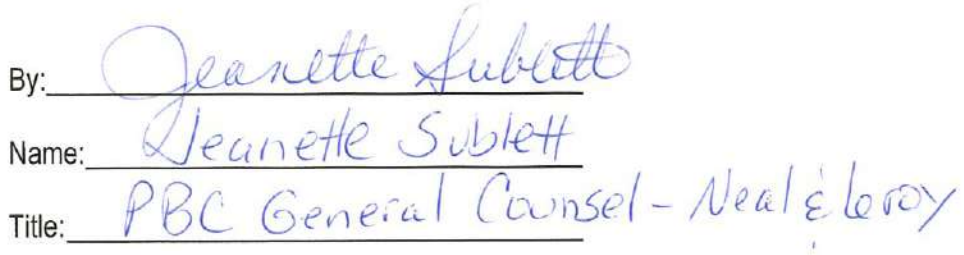 By: Jeanette Sublett
Name: Jeanette Sublett
Title: PBC General Counsel - Neal & Leroy